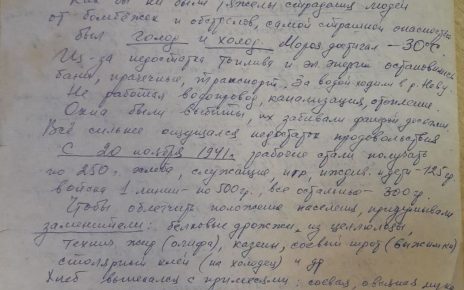 Как бы ни были тяжелы страдания людей
от бомбёжек и обстрелов, самой страшной опасностью
был голод и холод. Мороз достигал -30°С.
Из-за недостатка топлива и эл. энергии остановились
бани, прачечные, транспорт. За водой ходили в р. Неву.
Не работал водопровод, канализация, отопление.
Окна были выбиты, их забивали фанерой, досками.
Всё сильнее ощущался недостаток продовольствия
С 20 ноября 1941 г. рабочие стали получать
по 250 г. хлеба, служащие, ижд. дети - 125 гр
войска 1 линии - по 500 гр., все остальные - 300 гр.
Чтобы облегчить положение населения, придумывали
заменители: белковые дрожжи из целлюлозы,
технич. жир (олифа), казеин, соевый шрот (выжимки)
столярный клей (на холодец) и др
Хлеб выпекался с примесями: соевая, овсяная мука